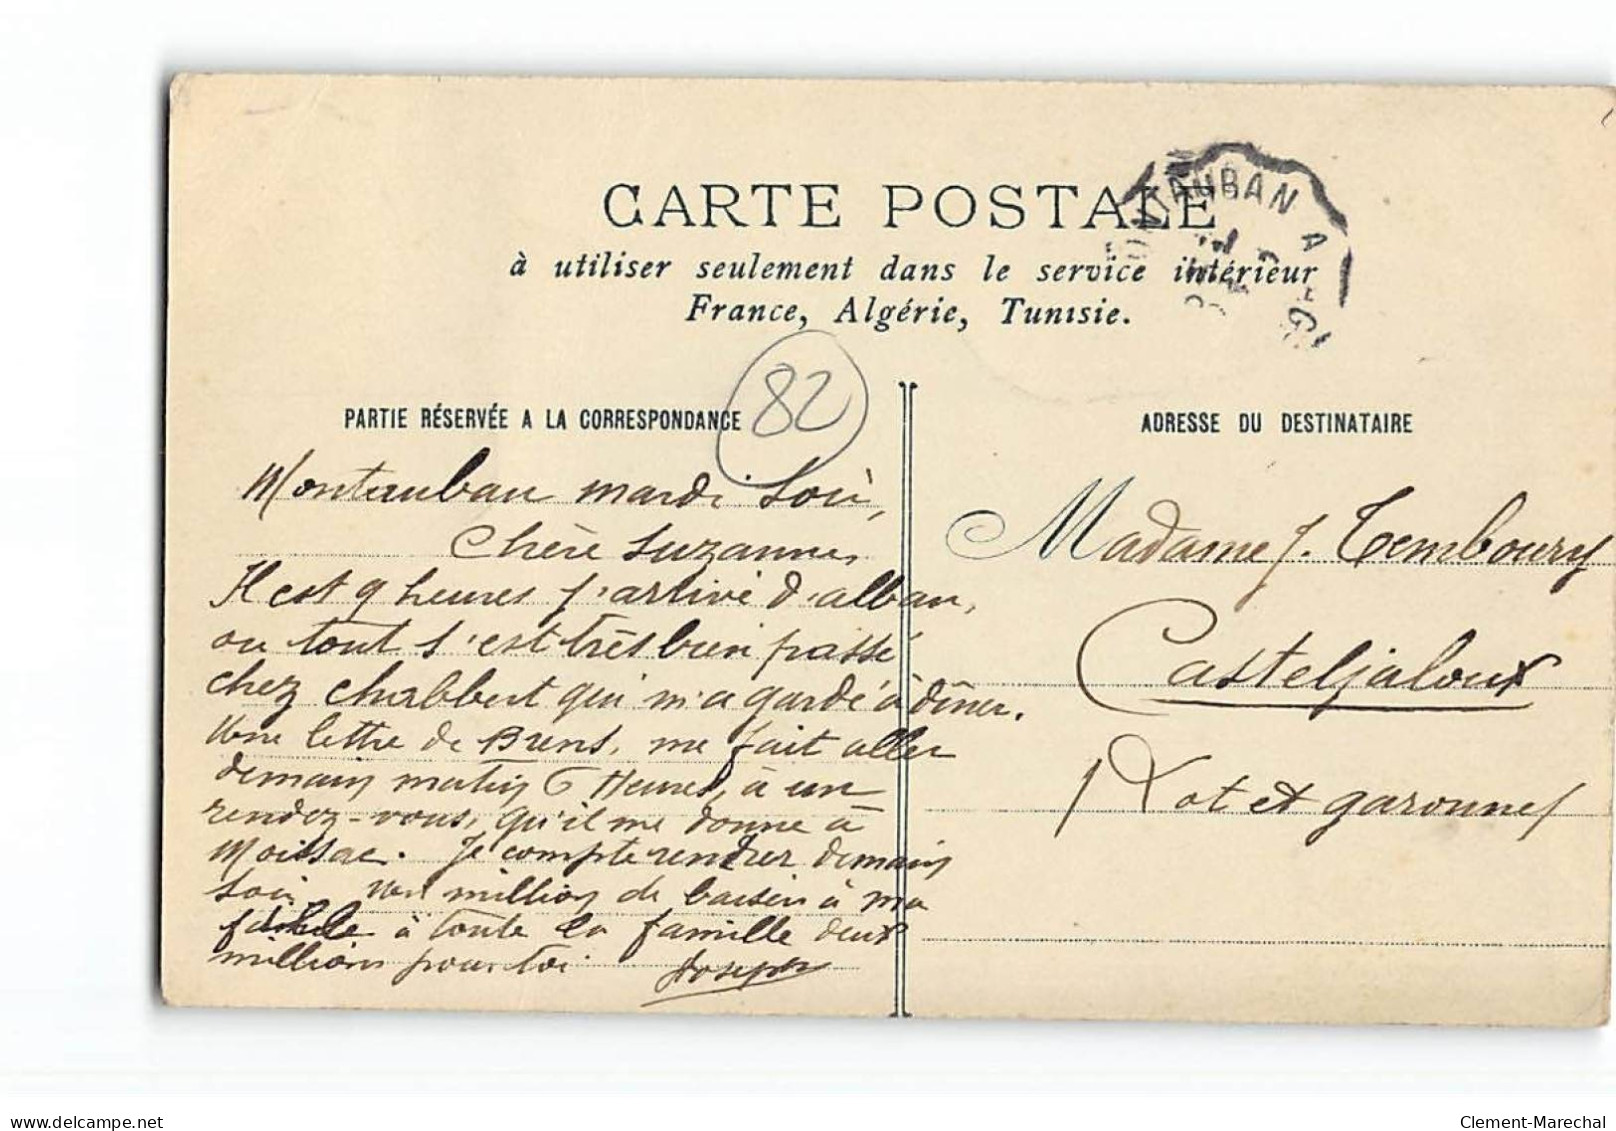 CARTE POSTALE
à utiliser seulement dans le service intérieur
France, Algérie, Tunisie.
MONTAUBAN A
82
PARTIE RÉSERVÉE A LA CORRESPONDANCE
Montauban mardi soir,
Chère Suzanne,
Il est 9 heures j'arrive d'alban,
ou tout s'est très bien passé
chez Chabbert qui m'a gardé à dîner.
Une lettre de Brens, me fait aller
demain matin 6 Heures, à un
rendez-vous, qu'il me donne à
Moissac. Je compte rentrer demain
soir. Un million de baisers à ma
à toute la famille deux
millions pour toi. Joseph
ADRESSE DU DESTINATAIRE
Madame J. Temboury
Casteljaloux
(Lot et garonne)
Clement-Marechal